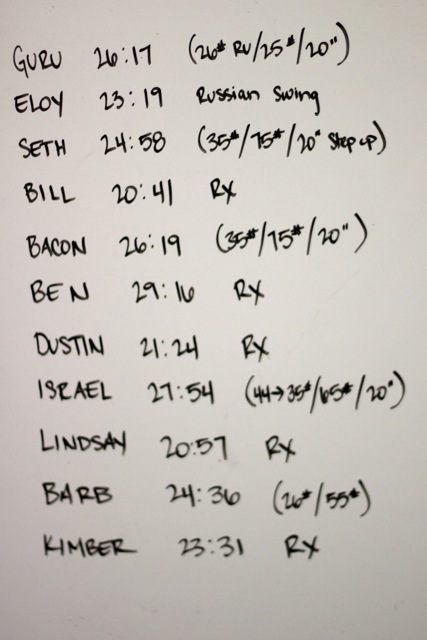 GURU 26:17 (26# RU/25#/20")
ELOY 23:19 Russian Swing
SETH 24:58 (35#/75#/20" Step up)
BILL 20:41 RX
BACON 26:19 (35#/75#/20")
BEN 29:16 RX
DUSTIN 21:24 RX
ISRAEL 27:54 (44→35#/65#/20")
LINDSAY 20:57 RX
BARB 24:36 (26#/55#)
KIMBER 23:31 RX